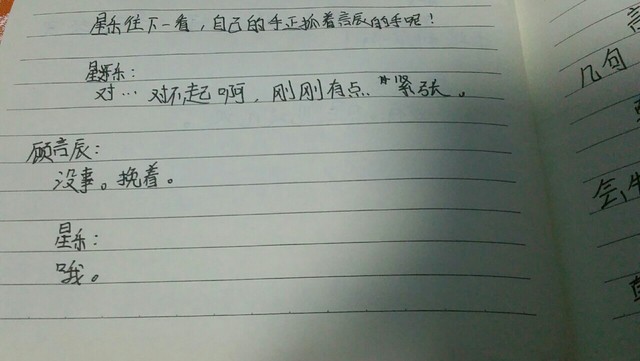 星乐往下一看，自己的手正抓着言辰的手呢！
星乐：
对…对不起啊，刚刚有点紧张。
顾言辰：
没事。挽着。
星乐：
哦。
几句